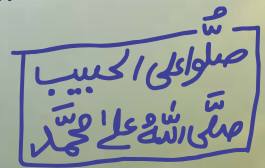 صلُّوا على الحبيب
صلَّى اللّٰه على محمَّد